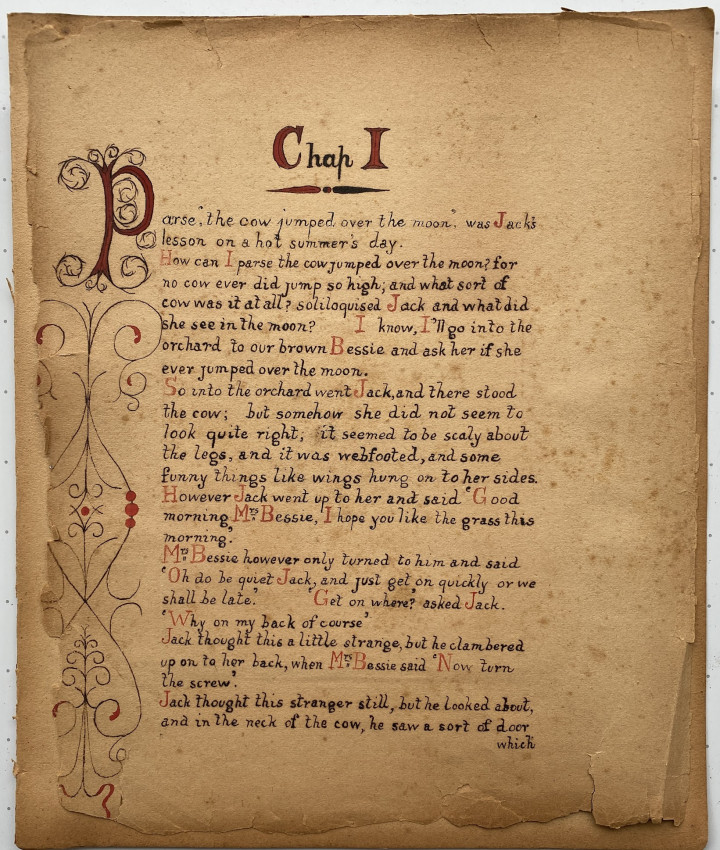 Chap I
Parse, "the cow jumped over the moon", was Jack's
lesson on a hot summer's day.
How can I parse the cow jumped over the moon? for
no cow ever did jump so high; and what sort of
cow was it at all? soliloquised Jack and what did
she see in the moon? I know, I'll go into the
orchard to our brown Bessie and ask her if she
ever jumped over the moon.
So into the orchard went Jack, and there stood
the cow; but somehow she did not seem to
look quite right; it seemed to be scaly about
the legs, and it was webfooted, and some
funny things like wings hung on to her sides.
However Jack went up to her and said 'Good
morning Mrs. Bessie, I hope you like the grass this
morning.'
Mrs. Bessie however only turned to him and said
'Oh do be quiet Jack, and just get on quickly or we
shall be late.' 'Get on where?' asked Jack.
'Why on my back of course'
Jack thought this a little strange, but he clambered
up on to her back, when Mrs. Bessie said 'Now turn
the screw'.
Jack thought this stranger still, but he looked about,
and in the neck of the cow, he saw a sort of door
which